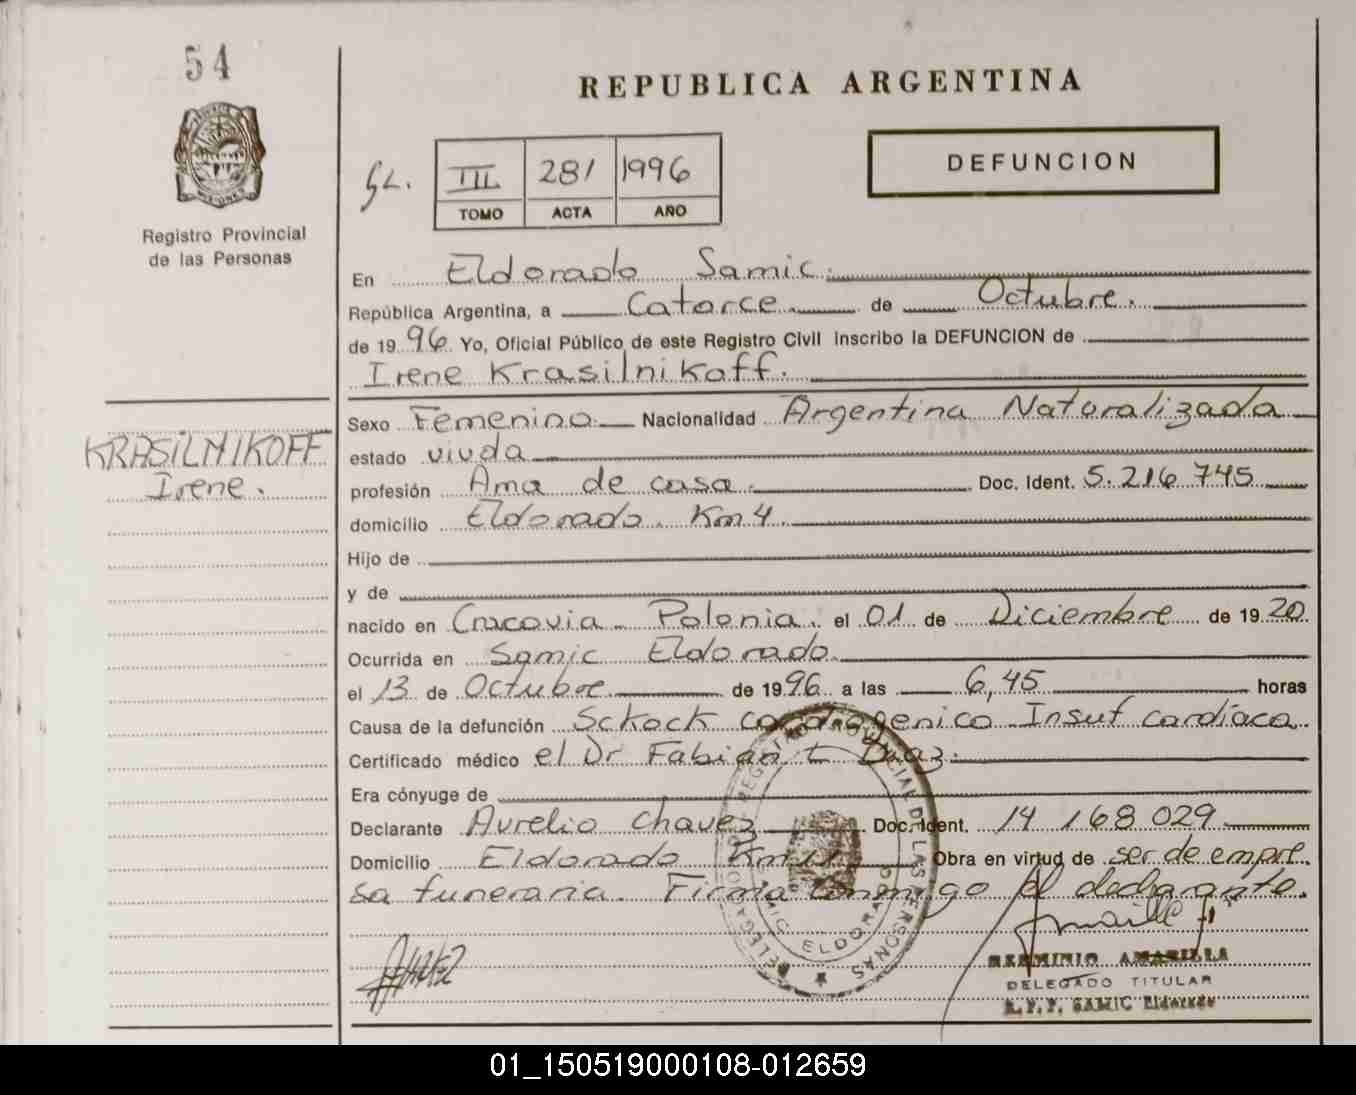 54
REPUBLICA ARGENTINA
III 281 1996
TOMO ACTA AÑO
DEFUNCION
Registro Provincial
de las Personas
En Eldorado Samic.
República Argentina, a Catorce de Octubre.
de 1996 Yo, Oficial Público de este Registro Civil inscribo la DEFUNCION de
Irene Krasilnikoff.
KRASILNIKOFF
Irene.
Sexo Femenino Nacionalidad Argentina Naturalizada
estado viuda
profesión Ama de casa. Doc. Ident. 5.216 745
domicilio Eldorado. Km 4.
Hijo de
y de
nacido en Cracovia - Polonia. el 01 de Diciembre de 1920
Ocurrida en Samic Eldorado.
el 13 de Octubre de 1996 a las 6,45 horas
Causa de la defunción Sckock cardiogenico Insuf cardíaca.
Certificado médico el Dr Fabian L Diaz.
Era cónyuge de
Declarante Aurelio Chavez Doc. Ident. 14 168 029
Domicilio Eldorado Km Obra en virtud de ser de empre
sa funeraria. Firma conmigo el declarante.
REGISTRO PROVINCIAL DE LAS PERSONAS
DELEGADO
SAMIC ELDORADO
HERMINIO AMARILLA
DELEGADO TITULAR
R.P.P. SAMIC Eldorado
01_150519000108-012659